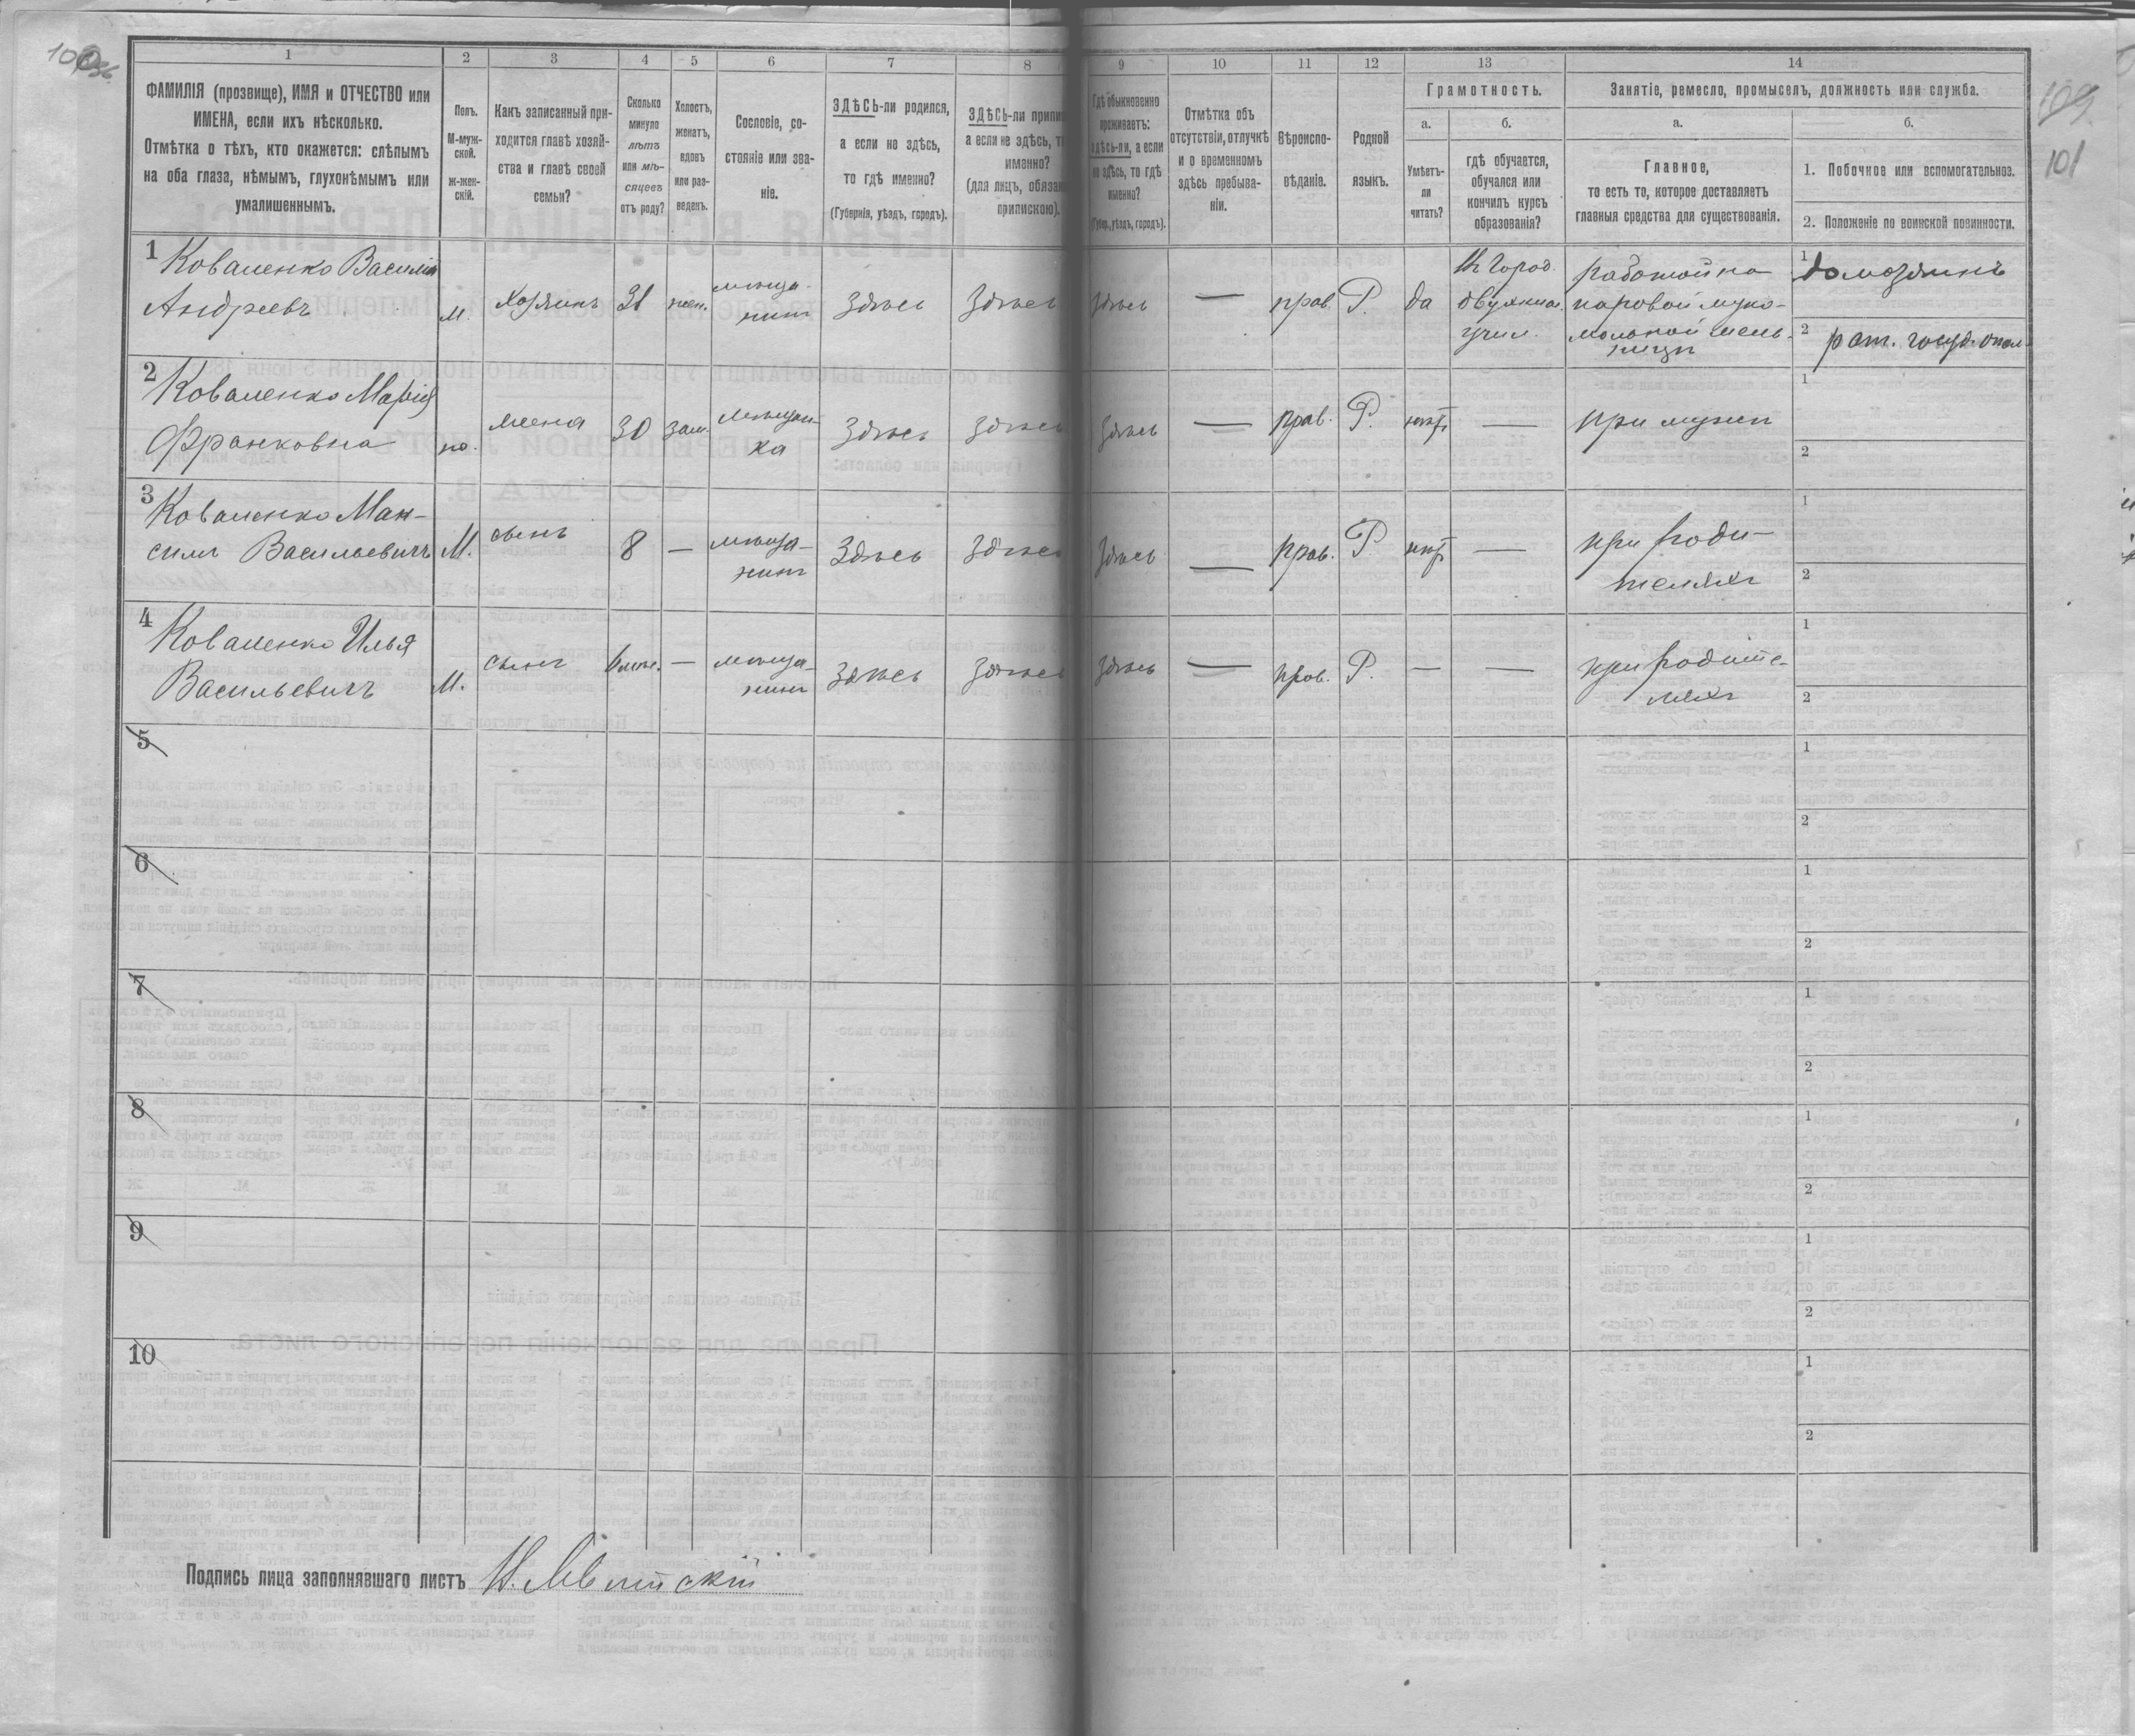 1 2 3 4 5 6 7 8 9 10 11 12 13 14
ФАМИЛІЯ (прозвище), ИМЯ и ОТЧЕСТВО или
ИМЕНА, если ихъ нѣсколько.
Отмѣтка о тѣхъ, кто окажется: слѣпымъ
на оба глаза, нѣмымъ, глухонѣмымъ или
умалишеннымъ.
Полъ.
М-муж-
ской.
ж-жен-
скій.
Какъ записанный при-
ходится главѣ хозяй-
ства и главѣ своей
семьи?
Сколько
минуло
лѣтъ
или мѣ-
сяцевъ
отъ роду?
Холостъ,
женатъ,
вдовъ
или раз-
веденъ.
Сословіе, со-
стояніе или зва-
ніе.
ЗДѢСЬ-ли родился,
а если не здѣсь,
то гдѣ именно?
(Губернія, уѣздъ, городъ).
ЗДѢСЬ-ли припи
а если не здѣсь, т
именно?
(для лицъ, обязан
припискою).
Гдѣ обыкновенно
проживаетъ:
здѣсь-ли, а если
не здѣсь, то гдѣ
именно?
(Губер., уѣздъ, городъ).
Отмѣтка объ
отсутствіи, отлучкѣ
и о временномъ
здѣсь пребыва-
ніи.
Вѣроиспо-
вѣданіе.
Родной
языкъ.
Грамотность.
а.
Умѣетъ-
ли
читать?
б.
гдѣ обучается,
обучался или
кончилъ курсъ
образованія?
Занятіе, ремесло, промыселъ, должность или служба.
а.
Главное,
то есть то, которое доставляетъ
главныя средства для существованія.
б.
1. Побочное или вспомогательное.
2. Положеніе по воинской повинности.
101
1 Коваленко Василій
Андреевъ
М. хозяинъ 31 жен. мѣща-
нинъ
здѣсь здѣсь здѣсь — прав. Р. да
въ Город.
двухклас.
учил.
работой на
паровой муко-
мольной мель-
ницѣ
1 домохозяинъ
2 рат. госуд. опол.
2 Коваленко Марія
Франковна
жена 30 зам. мѣщан-
ка
здѣсь здѣсь здѣсь — прав. Р. нѣтъ — при мужѣ
1
2
3 Коваленко Мак-
симъ Васильевичъ М. сынъ 8 — мѣща-
нинъ
здѣсь здѣсь здѣсь — прав. Р нѣтъ — при роди-
теляхъ
1
2
4 Коваленко Илья
Васильевичъ М. сынъ 6 мѣс. — мѣща-
нинъ
здѣсь здѣсь здѣсь — прав. Р. — — при родите-
ляхъ
1
2
5 1
2
6 1
2
7 1
2
8 1
2
9 1
2
10 1
2
Подпись лица заполнявшаго листъ